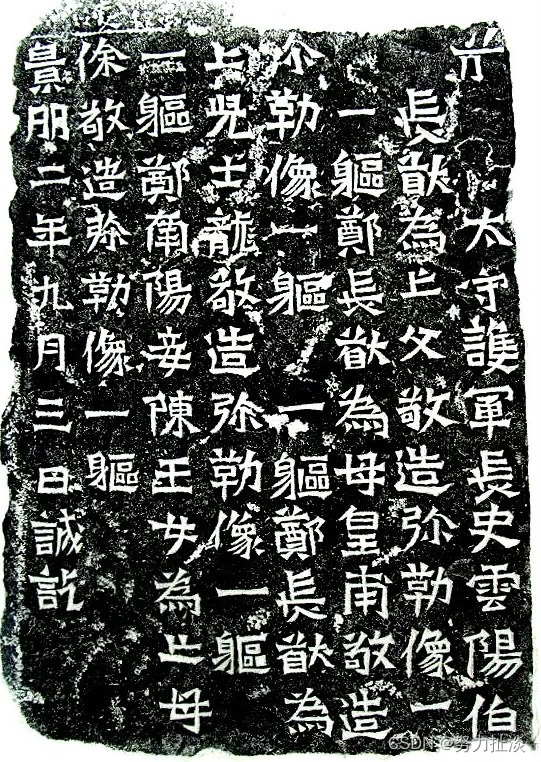 太守護軍長史雲陽伯
長猷為亡父敬造弥勒像一
一軀鄭長猷為母皇甫敬造
弥勒像一軀一軀鄭長猷為
亡兒士龍敬造弥勒像一軀
一軀鄭南陽妾陳玉女為亡母
徐敬造弥勒像一軀
景明二年九月三日誡訖
CSDN @努力扯淡